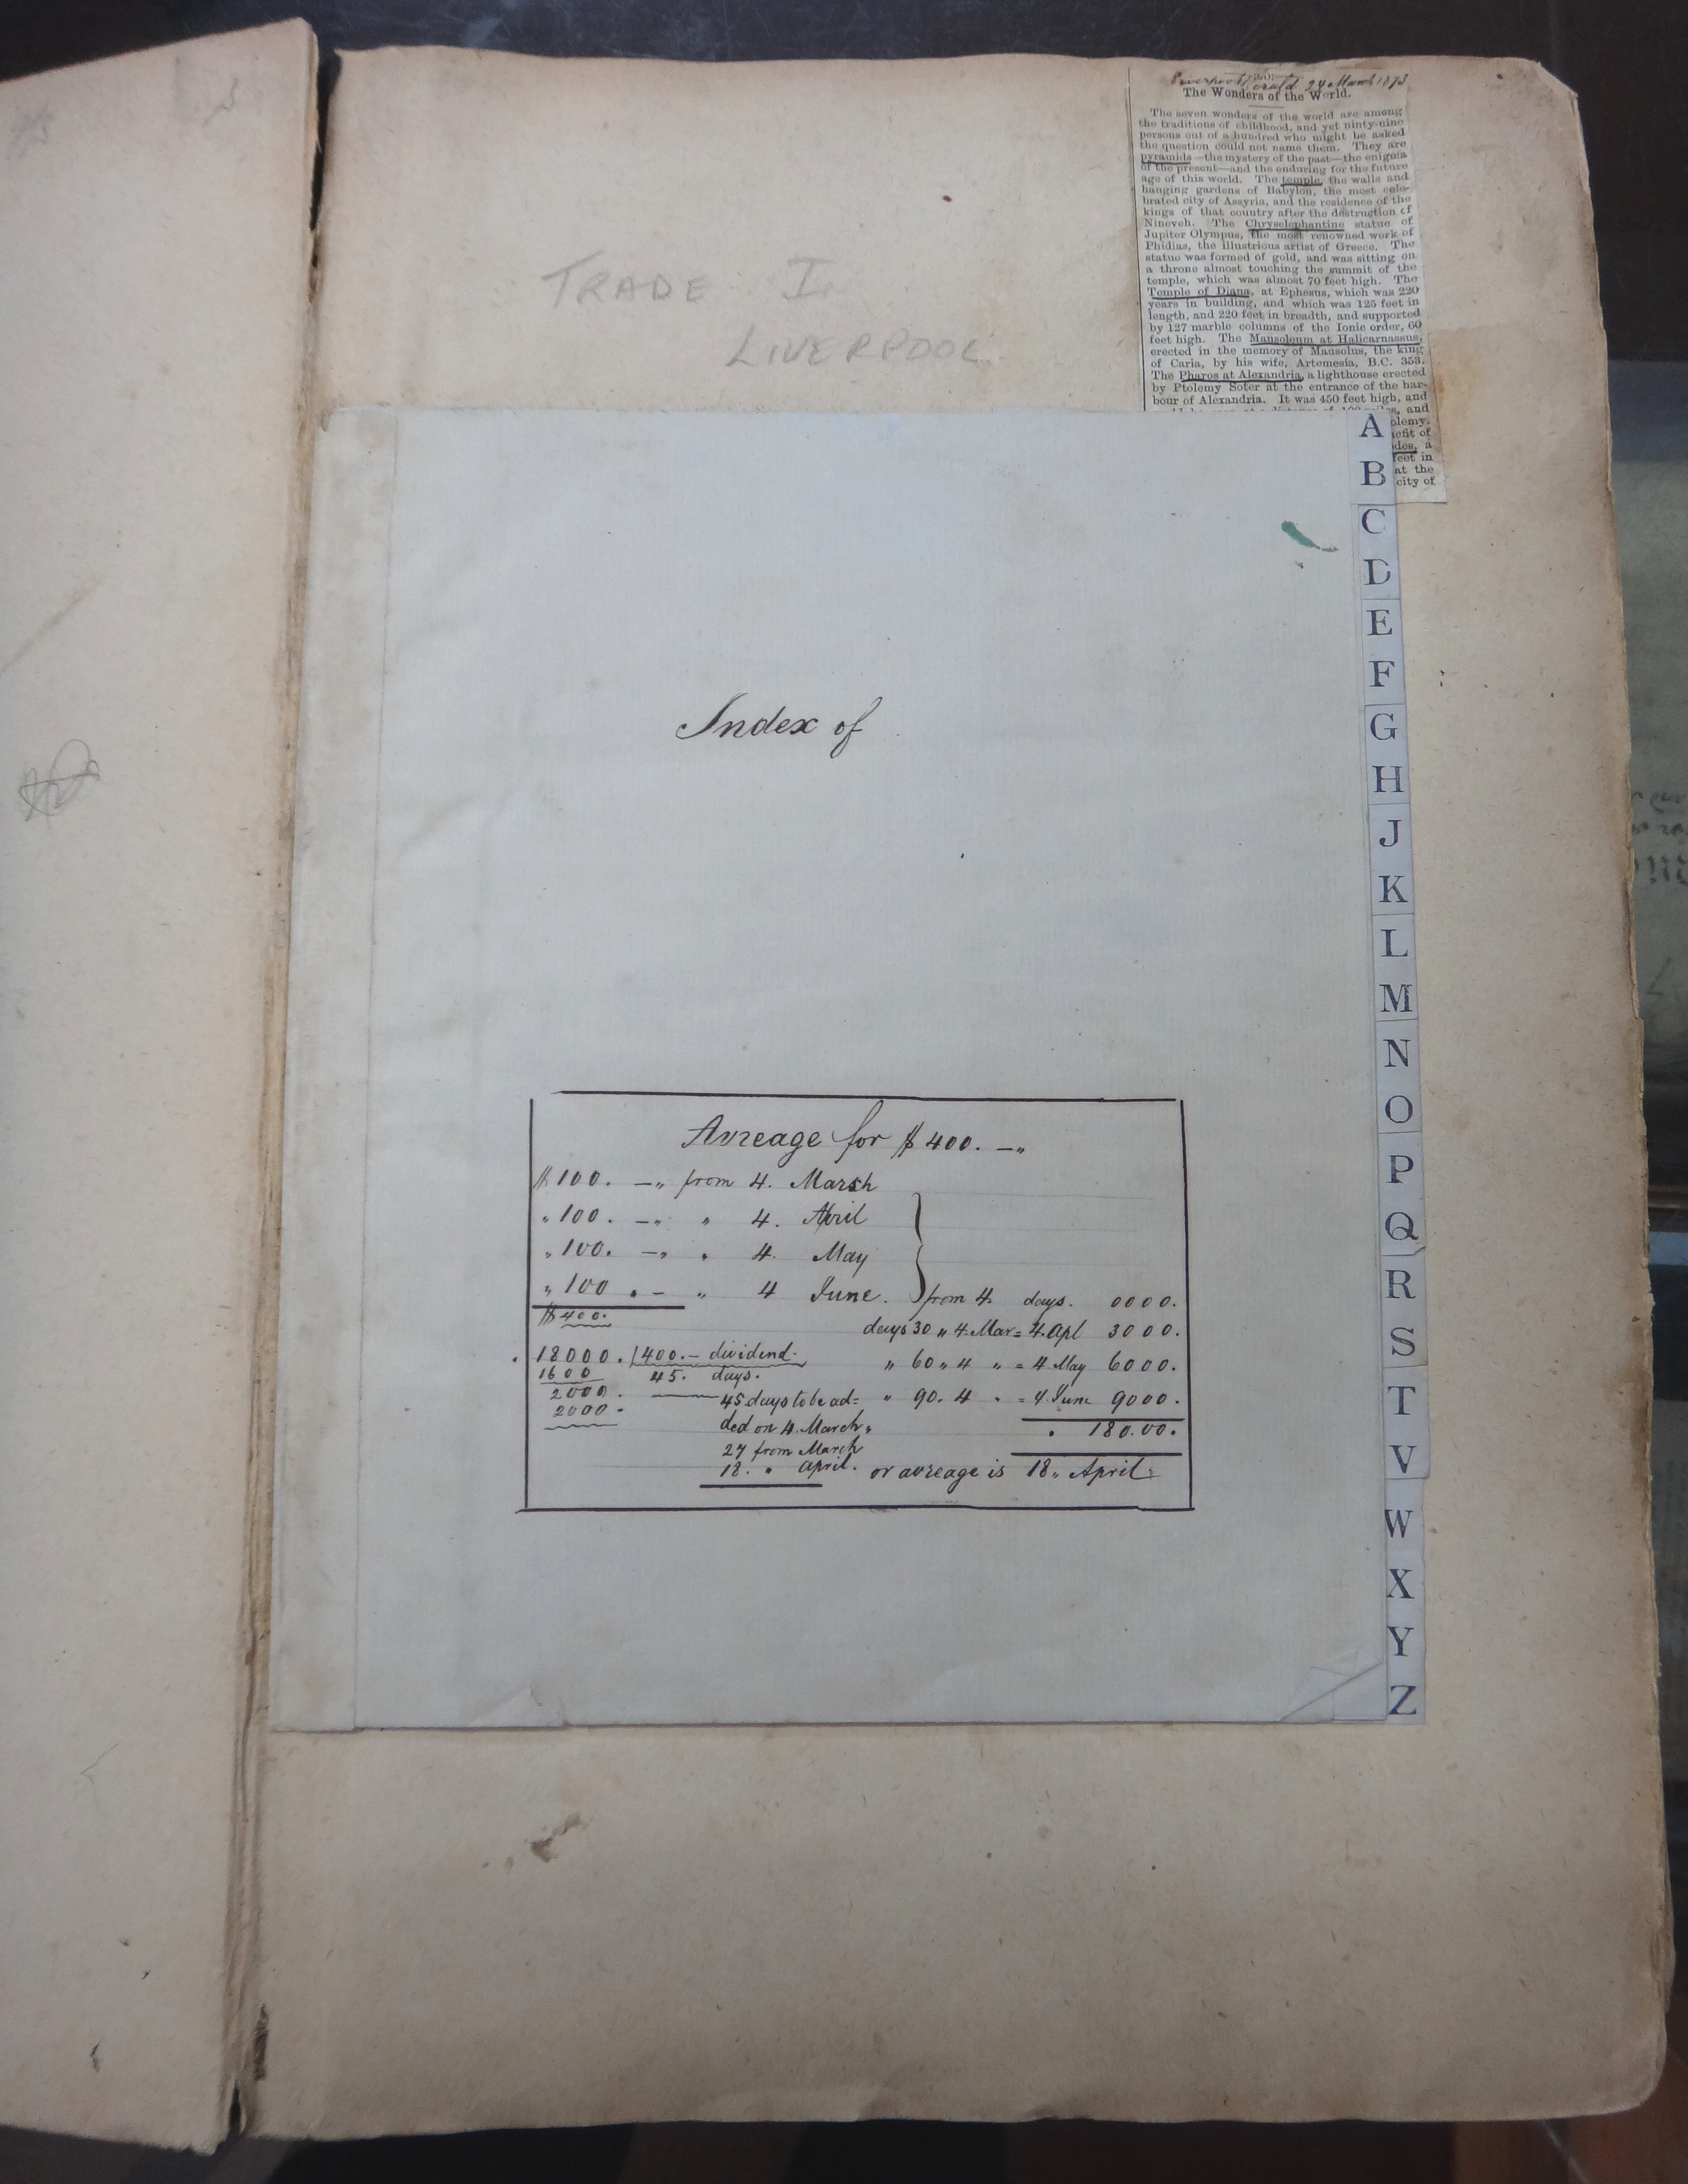 Liverpool Herald 24 March 1873
The Wonders of the World.
The seven wonders of the world are among
the traditions of childhood, and yet ninety-nine
persons out of a hundred who might be asked
the question could not name them. They are
pyramids—the mystery of the past—the enigma
of the present—and the enduring for the future
age of this world. The temple, the walls and
hanging gardens of Babylon, the most cele-
brated city of Assyria, and the residence of the
kings of that country after the destruction of
Nineveh. The Chryselephantine statue of
Jupiter Olympus, the most renowned work of
Phidias, the illustrious artist of Greece. The
statue was formed of gold, and was sitting on
a throne almost touching the summit of the
temple, which was almost 70 feet high. The
Temple of Diana, at Ephesus, which was 220
years in building, and which was 125 feet in
length, and 220 feet in breadth, and supported
by 127 marble columns of the Ionic order, 60
feet high. The Mansoleum at Halicarnassus,
erected in the memory of Mausolus, the king
of Caria, by his wife, Artemesia, B.C. 353.
The Pharos at Alexandria, a lighthouse erected
by Ptolemy Soter at the entrance of the har-
bour of Alexandria. It was 450 feet high, and
and
olemy.
nefit of
des, a
feet in
at the
city of
TRADE I
LIVERPOOL
A
B
C
D
E
F
G
H
J
K
L
M
N
O
P
Q
R
S
T
V
W
X
Y
Z
Index of
Avreage for $ 400. —"
$ 100. —" from 4. Marsh
" 100. —" " 4. April
" 100. —" " 4. May
" 100. — " 4 June. from 4. days. 0000.
$ 400. days 30 " 4. Mar = 4. Apl 3000.
18000. / 400. — dividend. " 60 " 4 " = 4. May 6000.
1600 45. days.
2000. — 45 days to be ad= " 90. 4 " = 4. June 9000.
2000. ded on 4. March " 180.00.
27 from March
18. " april. or avreage is 18 " April.